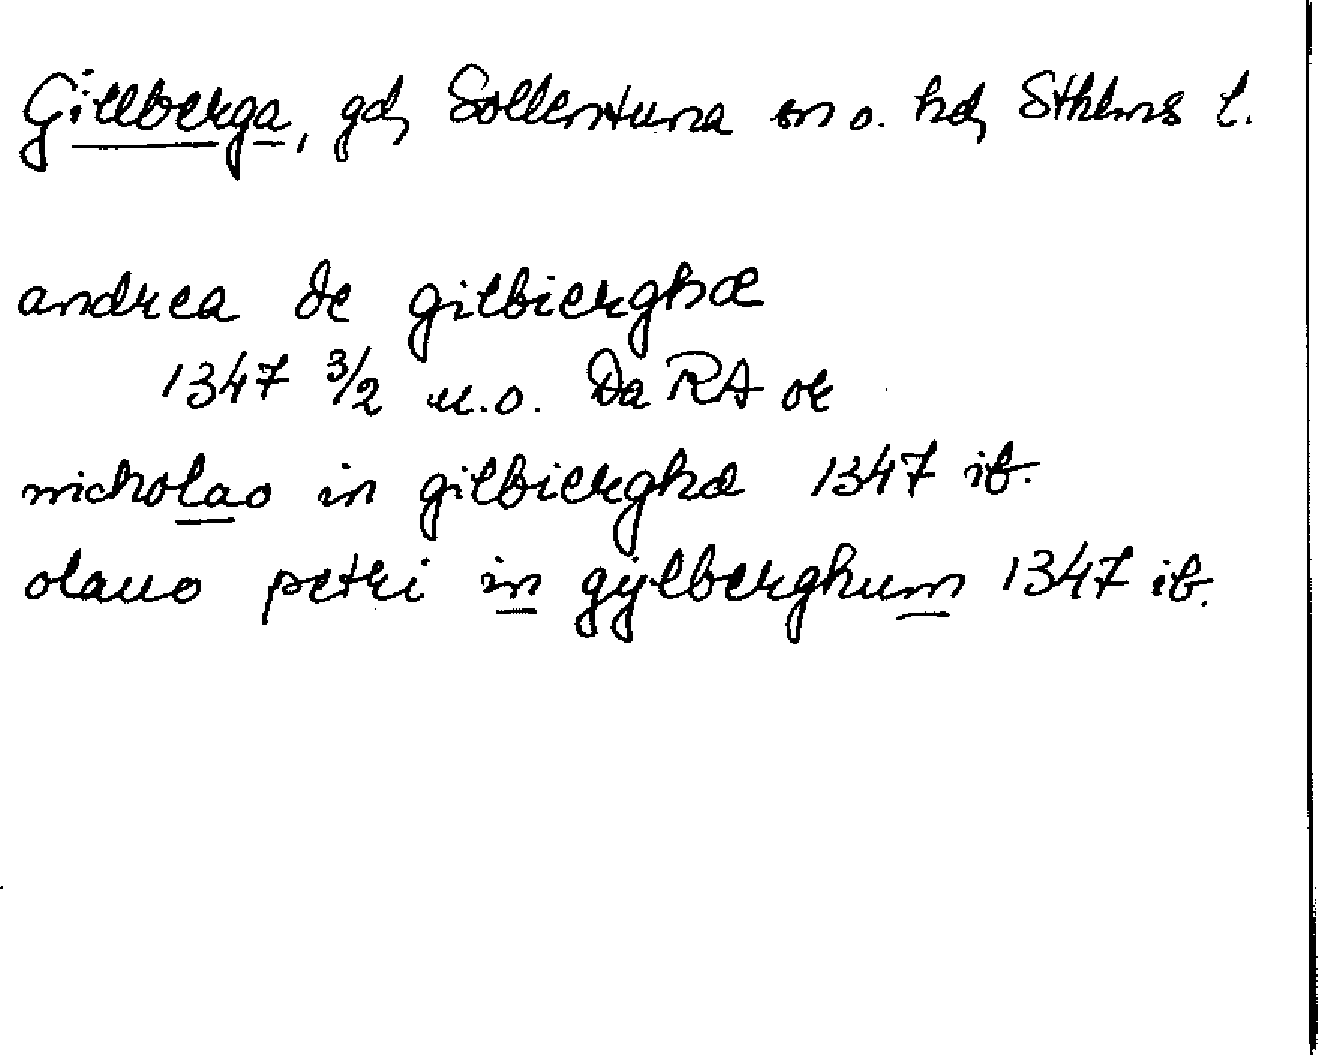 Gillberga, gd, Sollentuna sn o. hd, Sthlms l.
andrea de gilbierghæ
1347 3/2 u.o. Da RA or
nicholao in gilbierghæ 1347 ib.
olauo petri in gylberghum 1347 ib.